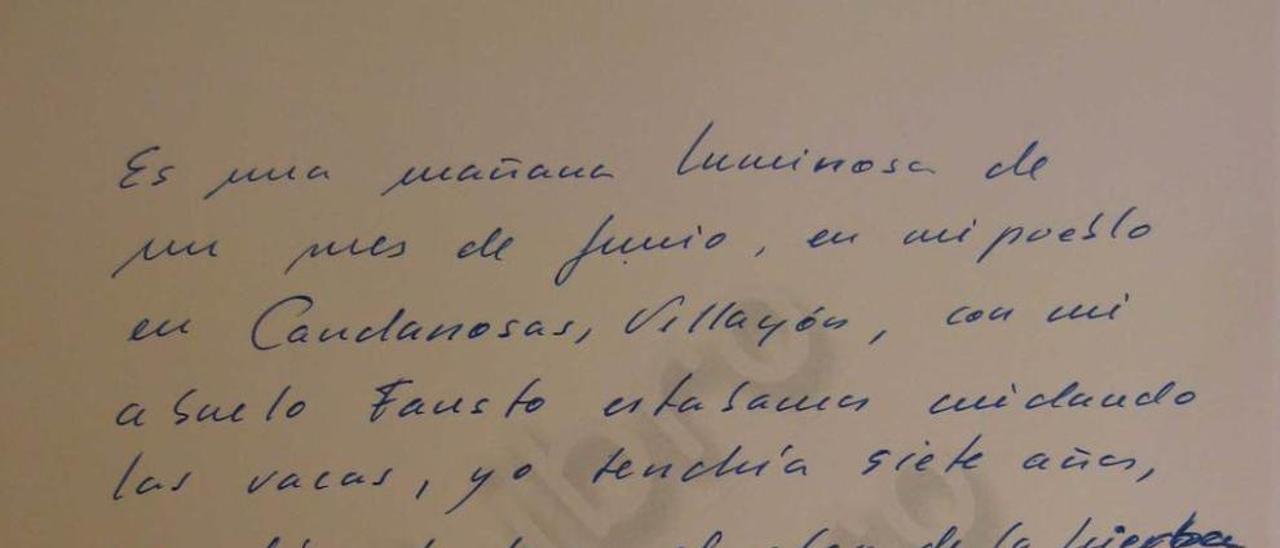 Es una mañana luminosa de
un mes de Junio, en mi pueblo
en Candanosas, Villayón, con mi
abuelo Fausto estabamos cuidando
las vacas, yo tendría siete años,
de la hierba